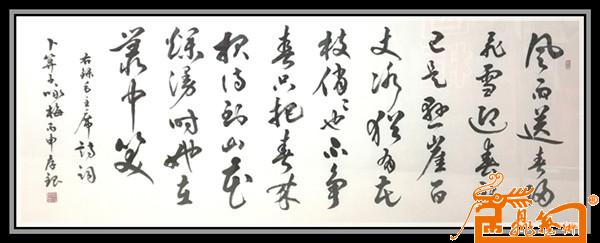 風雨送春歸
飛雪迎春到
已是懸崖百
丈冰猶有花
枝俏俏也不爭
春只把春來
報待到山花
爛漫時她在
叢中笑
右録毛主席詩詞
卜算子咏梅丙申